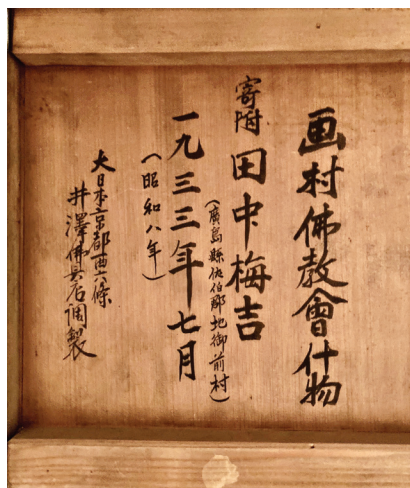 画村佛教會什物
寄附 田中梅吉
(廣島縣佐伯郡地御前村)
一九三三年七月
(昭和八年)
大日本京都西六條
井澤佛具店調製